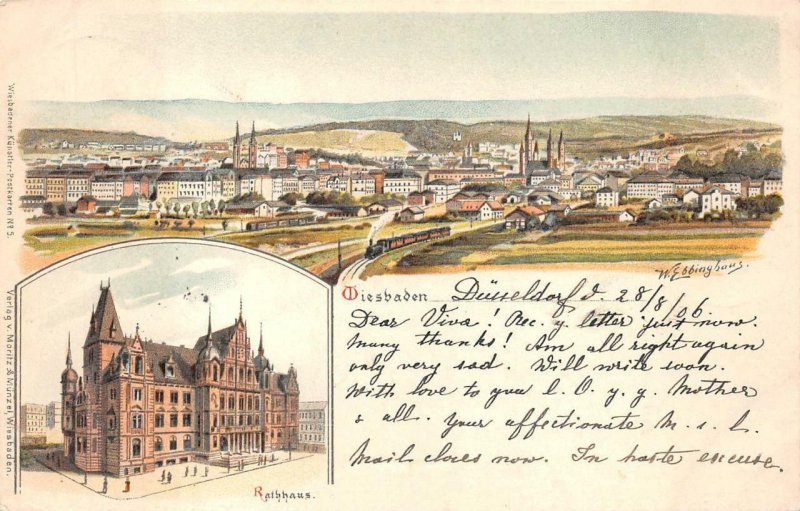 Wiesbadener Künstler-Postkarten Nº 5.
Verlag v. Moritz & Münzel, Wiesbaden.
W. Ebbinghaus.
Wiesbaden
Rathhaus.
Düsseldorf d. 28/8/06
Dear Viva! Rec. y. letter just now.
Many thanks! Am all right again
only very sad. Will write soon.
With love to you l. O. y. y. Mother
& all. Your affectionate M. s. L.
Mail closes now. In haste excuse.